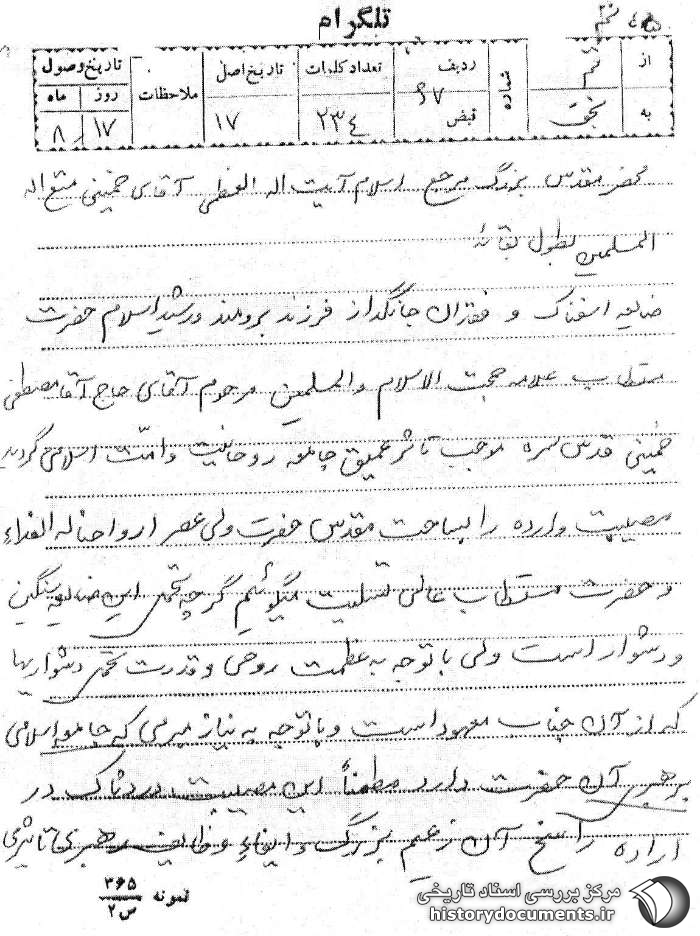 تلگرام
از قم
به نجف
شماره
ردیف ۶۷
قبض
تعداد کلمات ۲۳۴
تاریخ اصل ۱۷
ملاحظات
تاریخ وصول
روز ماه
۱۷ ۸
محضر مقدس بزرگ مرجع اسلام آیت اله العظمی آقای خمینی متع اله
المسلمین بطول بقائه
ضایعه اسفناک و فقدان جانگداز فرزند برومند و رشید اسلام حضرت
مستطاب علامه حجت الاسلام والمسلمین مرحوم آقای حاج آقا مصطفی
خمینی قدس سره موجب تاثر عمیق جامعه روحانیت و امت اسلامی گردید
مصیبت وارده را بساحت مقدس حضرت ولی عصر ارواحنا له الفداء
و حضرت مستطاب عالی تسلیت میگوئیم گرچه تحمل این ضایعه سنگین
و دشوار است ولی با توجه به عظمت روحی و قدرت تحمل دشواریها
که از آن جناب معهود است و با توجه به نیاز مبرمی که جامعه اسلامی
برهبری آن حضرت دارد مطمئناً این مصیبت دردناک در
اراده راسخ آن زعیم بزرگ و ایفاء وظایف رهبری تاثیری
نمونه ۳۶۵ س۲
مرکز بررسی اسناد تاریخی
historydocuments.ir